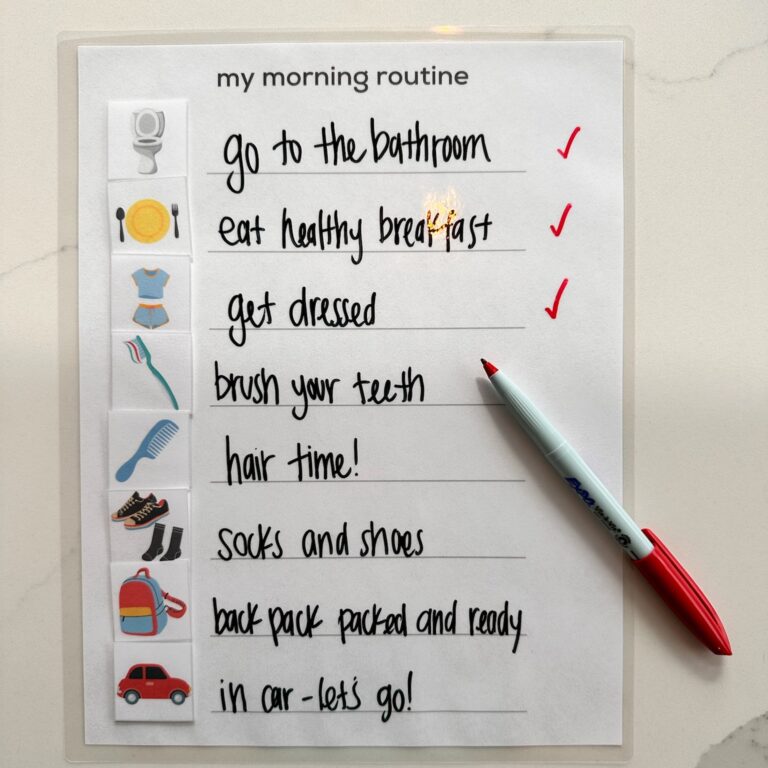 my morning routine
go to the bathroom
eat healthy breakfast
get dressed
brush your teeth
hair time!
socks and shoes
back pack packed and ready
in car - let's go!